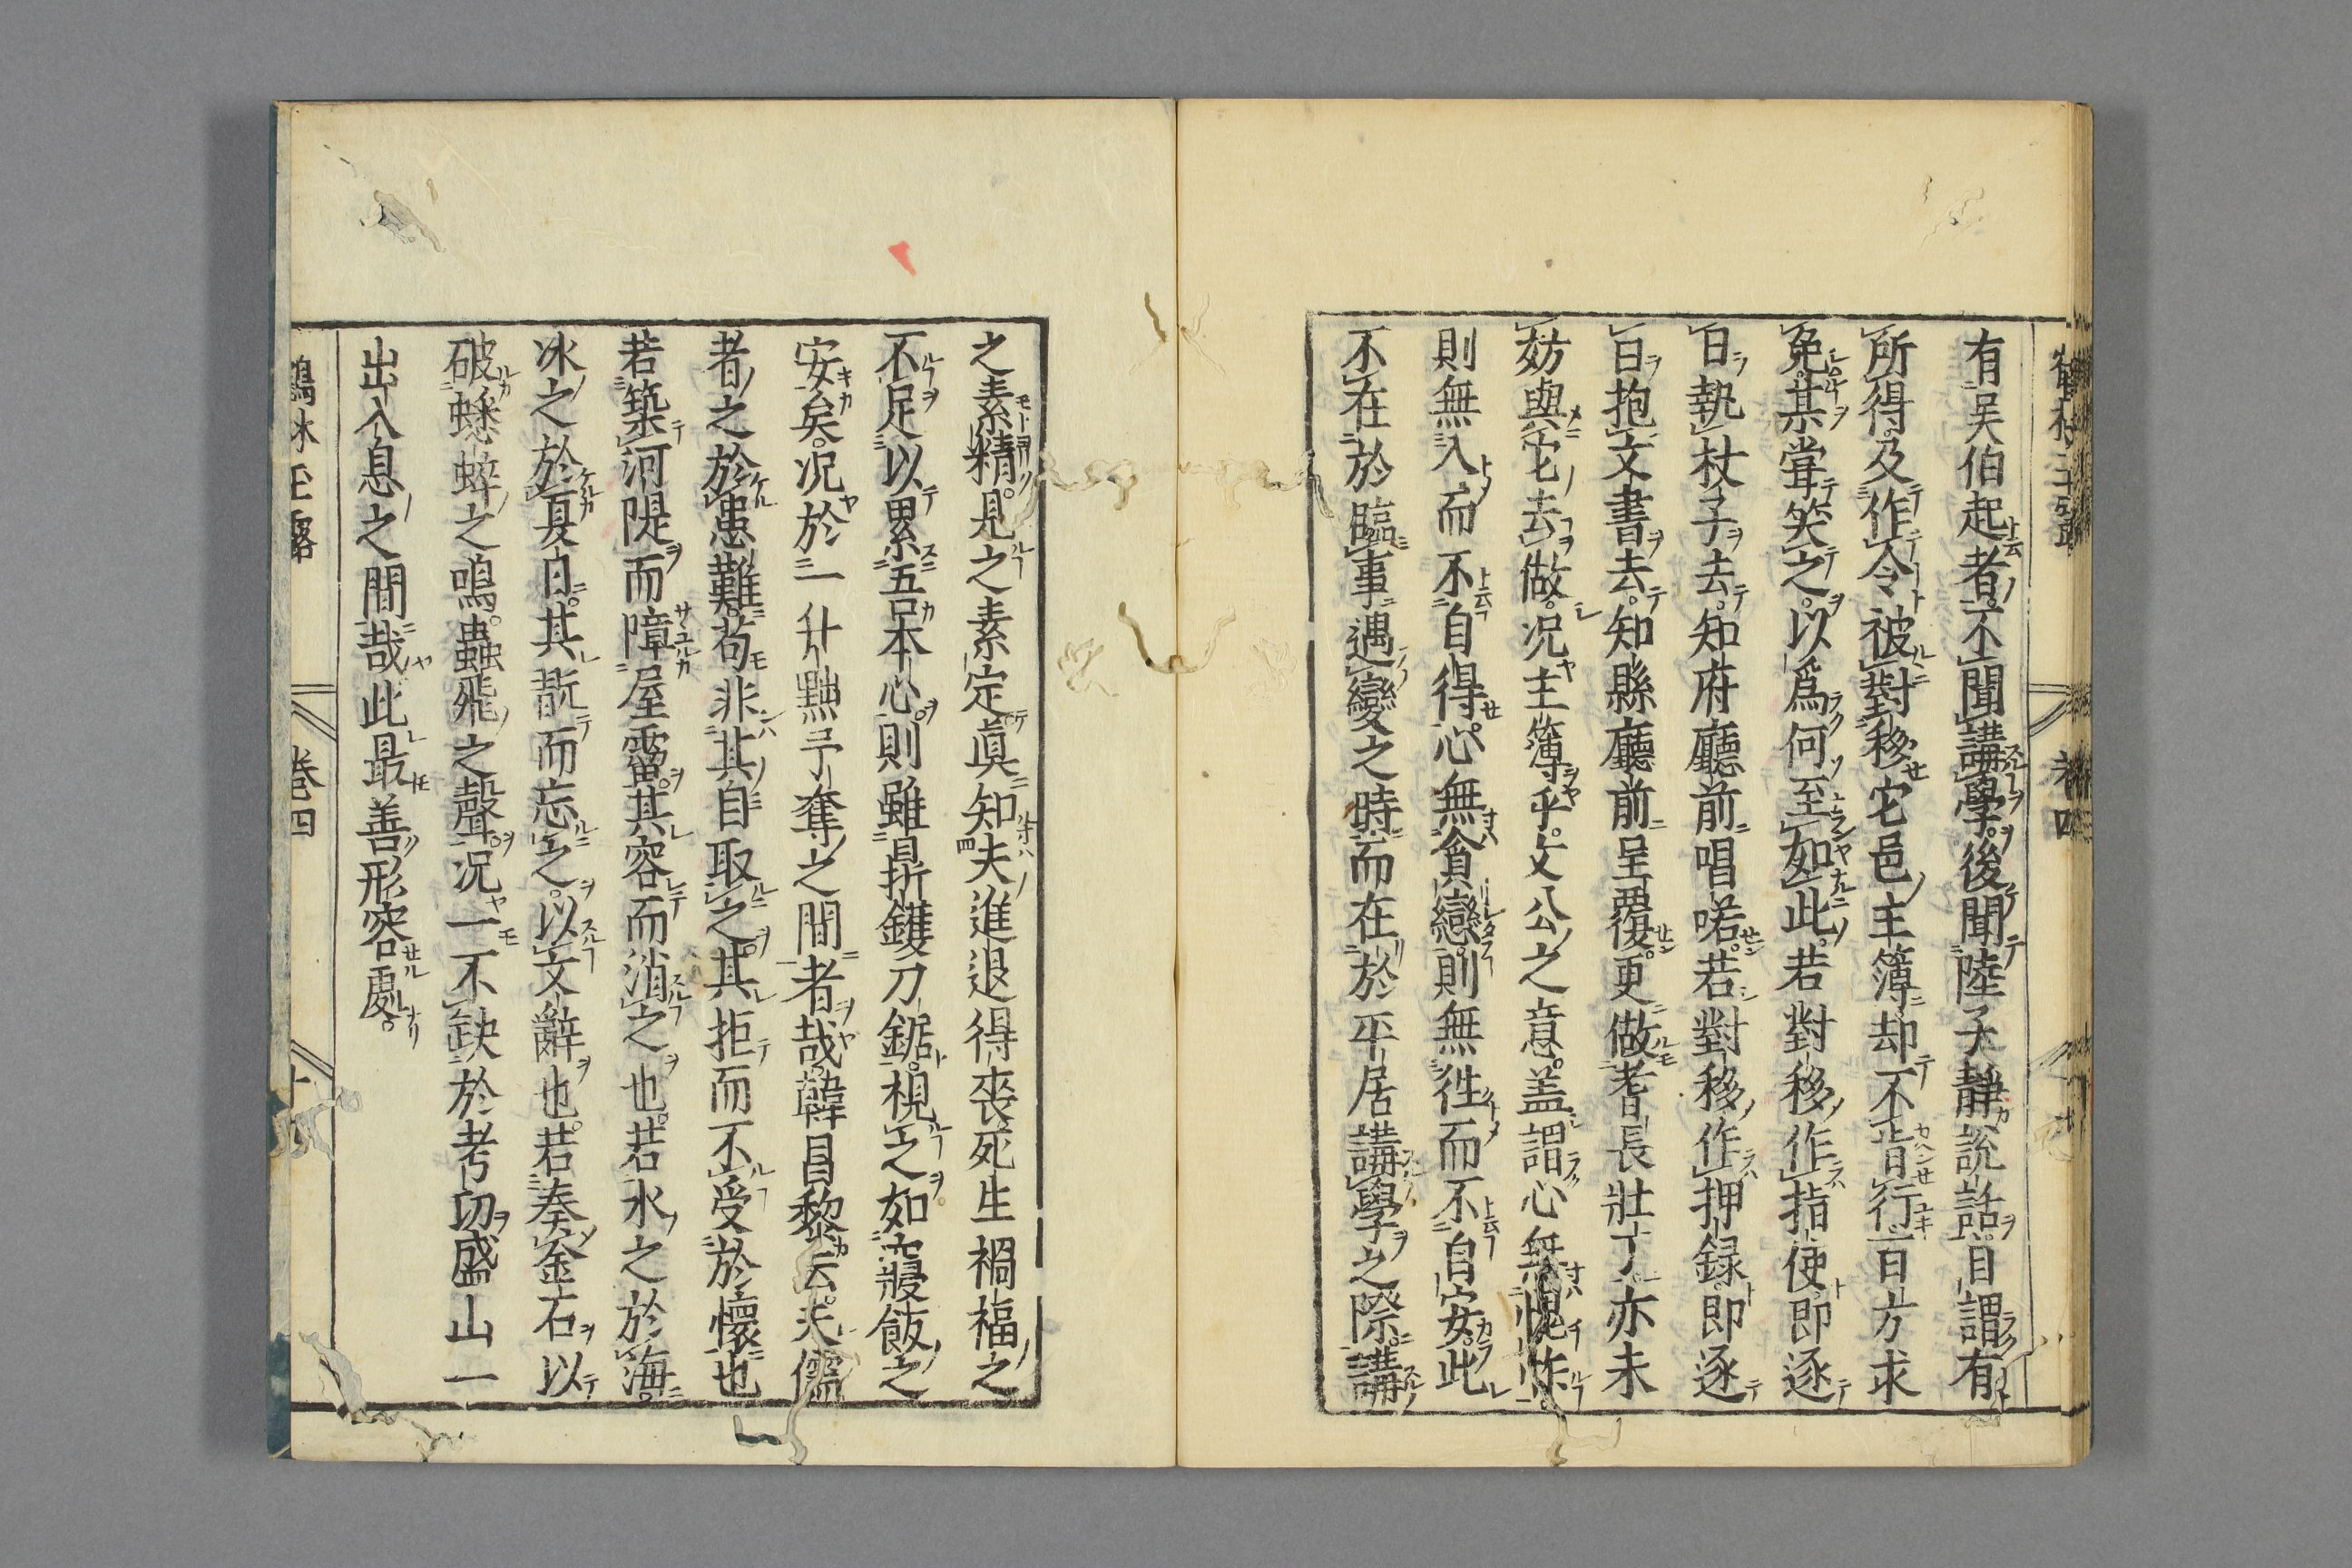 有吴伯起者。不聞講學。後聞陸子靜說話。自謂有
所得。及作令。被對移它邑主簿。却不肯行。百方求
免。某甞笑之。以爲何至如此。若對移作指使。即逐
日執杖子去。知府廳前唱喏。若對移作押録。即逐
日抱文書去。知縣廳前呈覆。更做耆長壯丁。亦未
妨與它去做。况主簿乎。文公之意。盖謂心無愧怍。
則無入而不自得。心無貪戀。則無徃而不自安。此
不在於臨事遇變之時。而在於平居講學之際。講
之素精。見之素定。眞知夫進退得喪死生禍福之
不足以累吾本心。則雖鼎鑊刀鋸。視之如寢飯之
安矣。况於一升黜予奪之間者哉。韓昌黎云。夫儒
者之於患難。苟非其自取之。其拒而不受於懷也。
若築河隄而障屋霤。其容而消之也。若水之於海。
冰之於夏日。其翫而忘之。以文辭也。若奏金石以
破蟋蟀之鳴。蟲飛之聲。况一不缺於考功盛山一
出入息之間哉。此最善形容處。
卷四